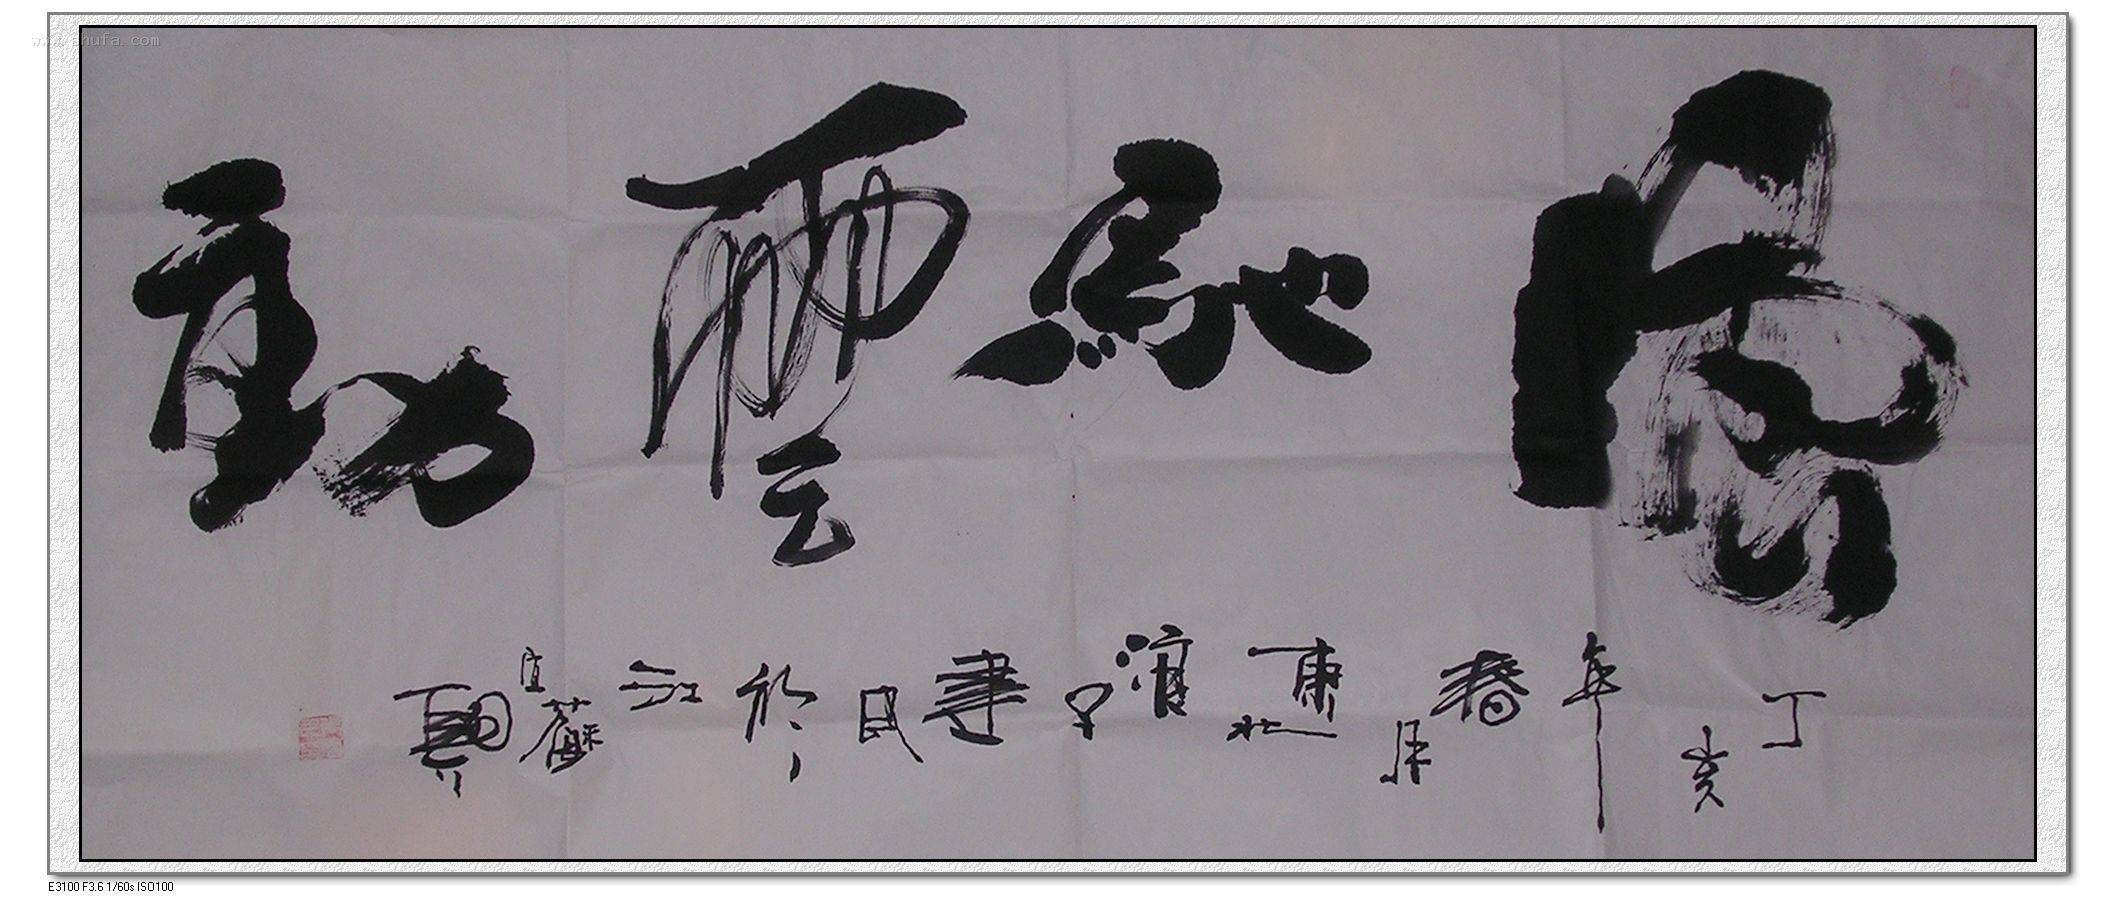 www.shufa.com
風馳雲動
丁亥年春月東北漢子建民於江蘇宜興
E3100 F3.6 1/60s ISO100